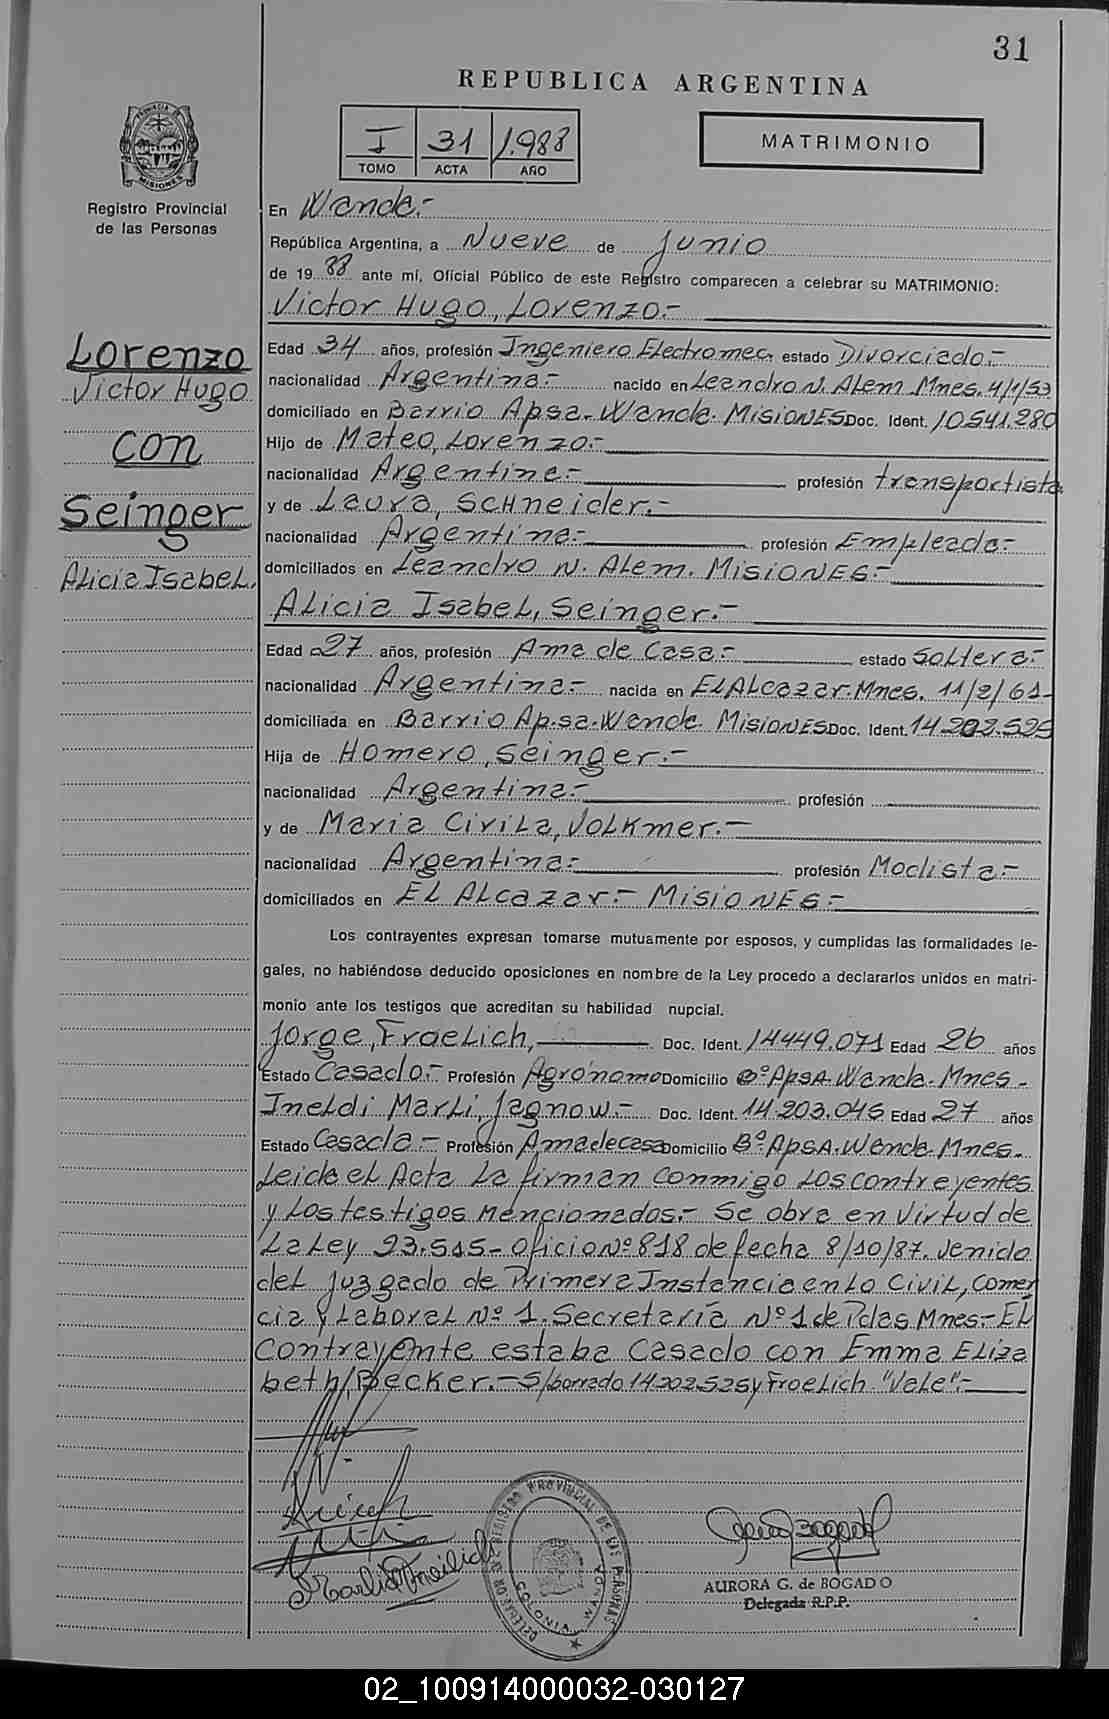 31
REPUBLICA ARGENTINA
I 31 1.988
TOMO ACTA AÑO
MATRIMONIO
PROVINCIA DE MISIONES
Registro Provincial
de las Personas
En Wanda.-
República Argentina, a Nueve de Junio
de 19 88 ante mí, Oficial Público de este Registro comparecen a celebrar su MATRIMONIO:
Victor Hugo, Lorenzo.-
Lorenzo
Victor Hugo
con
Seinger
Alicia Isabel.
Edad 34 años, profesión Ingeniero Electromec. estado Divorciado.-
nacionalidad Argentina.- nacido en Leandro N. Alem Mnes. 4/1/53
domiciliado en Barrio Apsa-Wanda. MISIONES Doc. Ident. 10.541.280
Hijo de Mateo, Lorenzo.-
nacionalidad Argentina.- profesión transportista
y de Laura, SCHneider.-
nacionalidad Argentina.- profesión Empleada.-
domiciliados en Leandro N. Alem. MISIONES.-
Alicia Isabel, Seinger.-
Edad 27 años, profesión Ama de Casa.- estado Soltera.-
nacionalidad Argentina.- nacida en El Alcazar. Mnes. 11/2/61-
domiciliada en Barrio Ap.sa-Wanda. MISIONES Doc. Ident. 14.202.525
Hija de Homero, Seinger.-
nacionalidad Argentina.- profesión
y de Maria Civila, Volkmer.-
nacionalidad Argentina.- profesión Modista.-
domiciliados en El Alcazar.- MISIONES.-
Los contrayentes expresan tomarse mutuamente por esposos, y cumplidas las formalidades le-
gales, no habiéndose deducido oposiciones en nombre de la Ley procedo a declararlos unidos en matri-
monio ante los testigos que acreditan su habilidad nupcial.
Jorge, Froelich, Doc. Ident. 14449.071 Edad 26 años
Estado Casado.- Profesión Agrónomo Domicilio Bº Apsa-Wanda. Mnes-
Ineldi Marli, Jagnow.- Doc. Ident. 14 203.046 Edad 27 años
Estado Casada- Profesión Ama de casa Domicilio Bº ApsA-Wanda. Mnes.
Leida el Acta la firman conmigo los contrayentes
y los testigos mencionados.- Se obra en virtud de
la Ley 23.515- Oficio Nº 818 de fecha 8/10/87. Venido
del Juzgado de Primera Instancia en lo Civil, Comer
cia y Laboral Nº 1. Secretaría Nº 1 de Pdas Mnes.- El
Contrayente estaba Casado con Emma Eliza
beth, Becker.- S/borrado 14202525 y Froelich "Vale".-
DELEGACION DE REGISTRO PROVINCIAL DE LAS PERSONAS
COLONIA WANDA
AURORA G. de BOGADO
Delegada R.P.P.
02_100914000032-030127